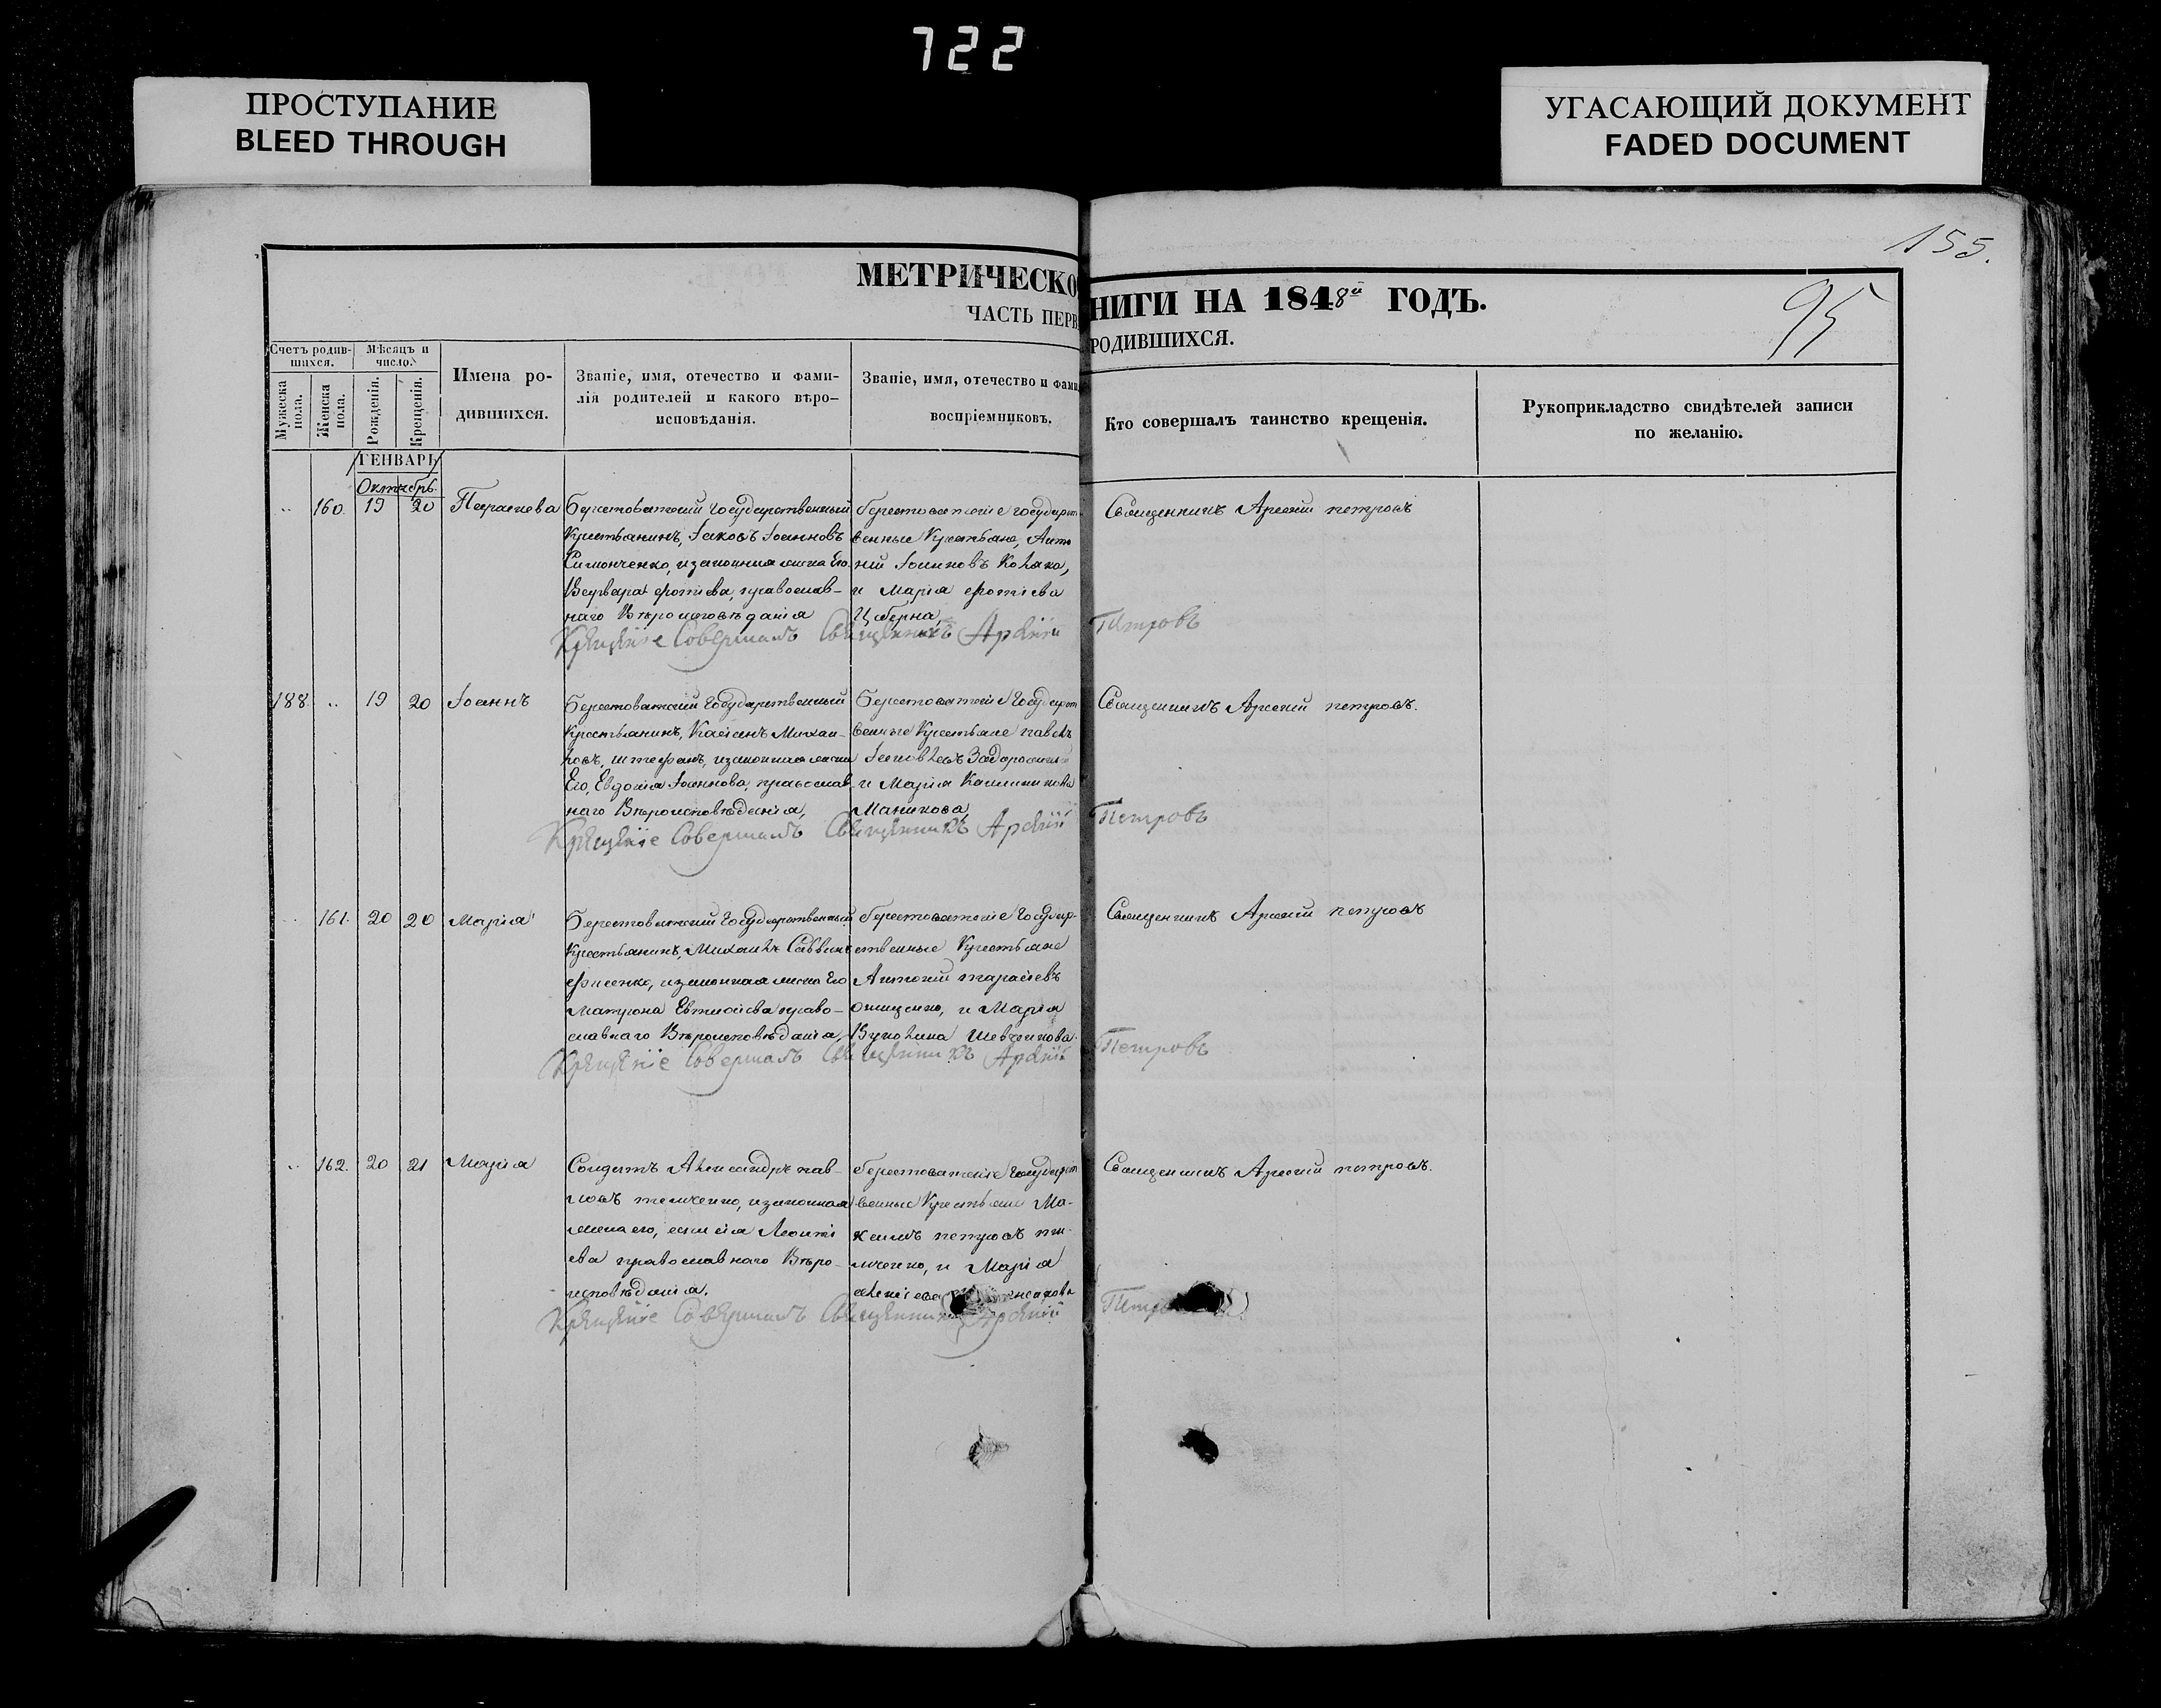 722
ПРОСТУПАНИЕ
BLEED THROUGH
УГАСАЮЩИЙ ДОКУМЕНТ
FADED DOCUMENT
155.
95
МЕТРИЧЕСКО
НИГИ НА 1848й ГОДЪ.
ЧАСТЬ ПЕРВ
РОДИВШИХСЯ.
Счетъ родив-
шихся.
Мѣсяцъ и
число.
Мужеска
пола.
Женска
пола.
Рожденія.
Крещенія.
Имена ро-
дившихся.
Званіе, имя, отечество и фами-
лія родителей и какого вѣро-
исповѣданія.
Званіе, имя, отечество и фами
воспріемниковъ.
Кто совершалъ таинство крещенія.
Рукоприкладство свидѣтелей записи
по желанію.
ГЕНВАРЬ
Октябрь.
160. 19 20 Параскева
Берестоватский государственный
Крестьянинъ, Іаковъ Іоанновъ
Симонченко, и законная жена Его
Варвара фотіева, православ-
наго Вѣроисповѣданія
берестоватскіе государст
венные Крестьяне, Анто
ній Іоанновъ
и Марія фотіева
Священникъ Арсеній петровъ
Крещеніе Совершалъ Священникъ Арсеній Петровъ
188. 19 20 Іоаннъ
Берестоватский государственный
Крестьянинъ, Касіанъ Михаи-
ловъ, штефанъ, и законная жена
Его, Евдокія Іоаннова, православ
наго Вѣроисповѣданія,
Берестоватскіе Государст
венные Крестьяне павелъ
Іаковлевъ
и Марія
Маникова
Священникъ Арсеній петровъ.
Крещеніе Совершалъ Священникъ Арсеній Петровъ
161. 20 20 Марія
Берестоватский государственный
Крестьянинъ, Михаилъ Саввинъ
фисенко, и законная жена Его
Матрона православнаго Вѣроисповѣданія,
берестоватскіе Государ-
ственные Крестьяне
Антоній тарасіевъ
онищенко, и Марія
Вуколина Шевченкова.
Священникъ Арсеній петровъ
Крещеніе Совершалъ Священникъ Арсеній Петровъ
162. 20 21 Марія
Солдатъ Александръ пав-
ловъ и законная
жена его, Леонті
ева православнаго Вѣро-
исповѣданія.
берестоватскіе государст
венные Крестьяне Ма-
ксимъ петровъ
и Марія
Священникъ Арсеній петровъ.
Крещеніе Совершалъ Священникъ Арсеній